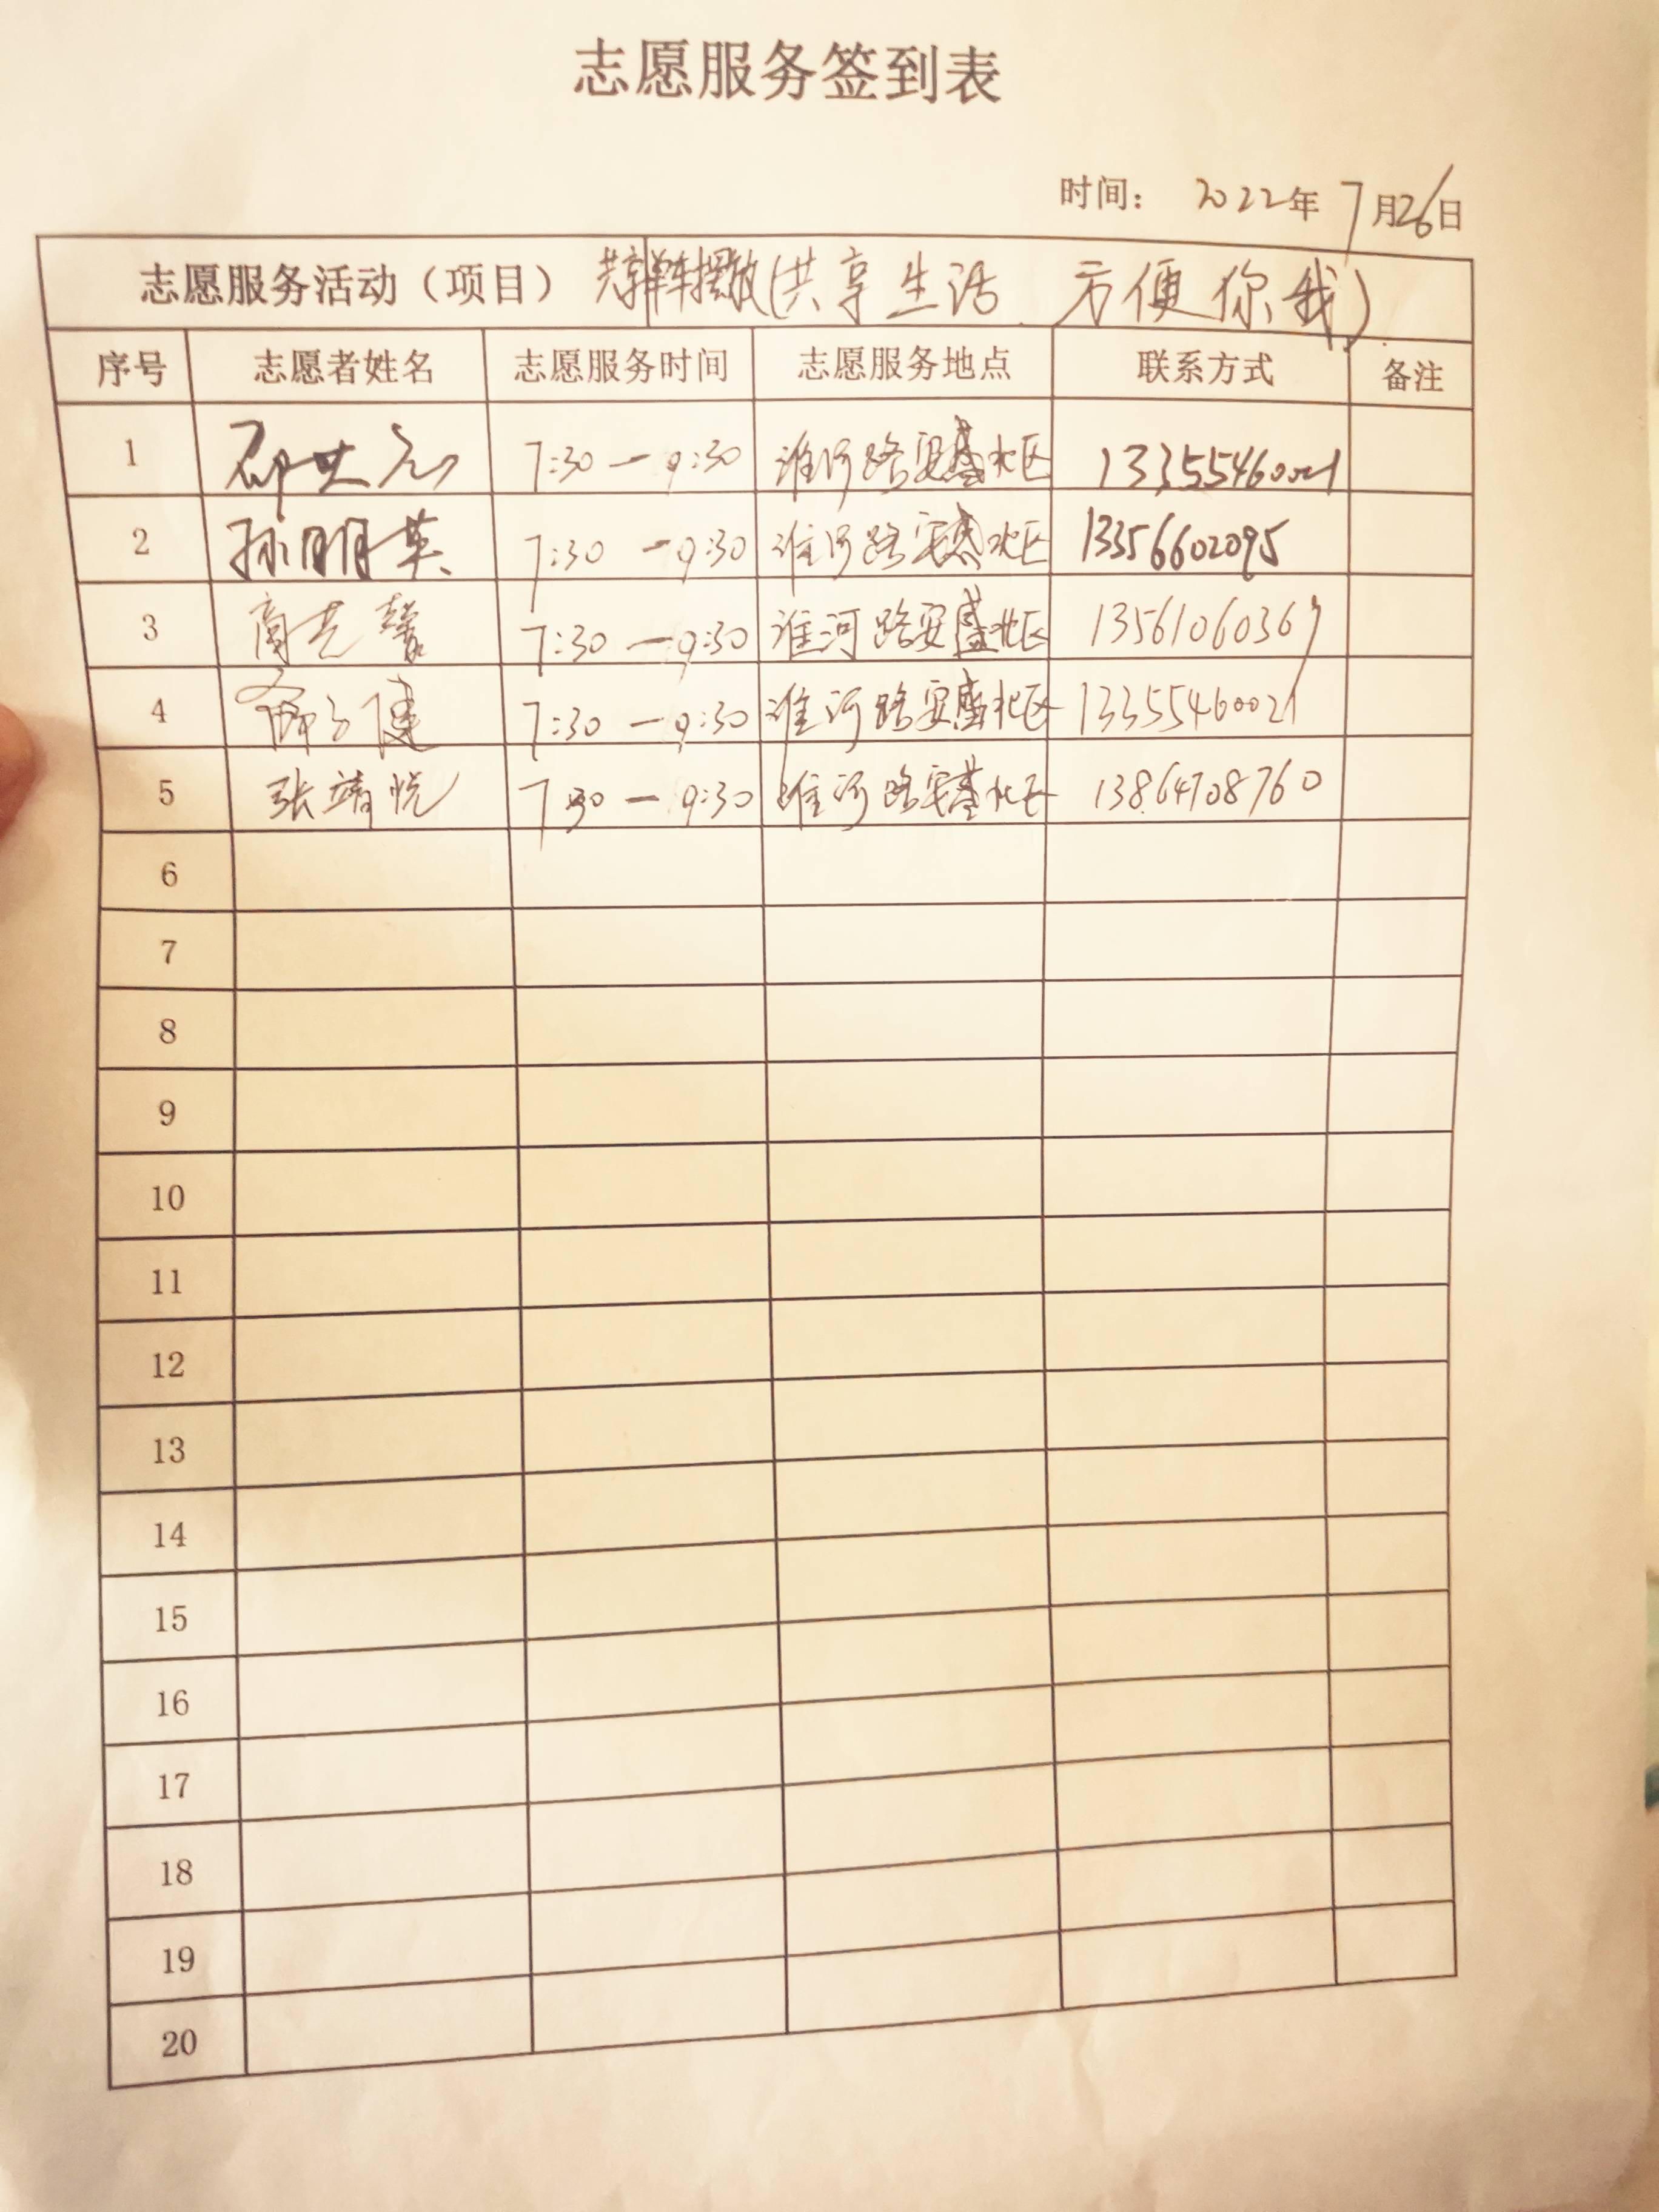 志愿服务签到表
时间： 2022年7月26日
志愿服务活动（项目） 共享单车摆放(共享生活 方便你我)
序号 志愿者姓名 志愿服务时间 志愿服务地点 联系方式 备注
1 7:30—9:30 淮河路安盛北区 13355460021
2 孙明英 7:30—9:30 淮河路安盛北区 13356602095
3 7:30—9:30 淮河路安盛北区 13561060367
4 7:30—9:30 淮河路安盛北区 13355460021
5 张靖悦 7:30—9:30 淮河路安盛北区 13864708760
6
7
8
9
10
11
12
13
14
15
16
17
18
19
20